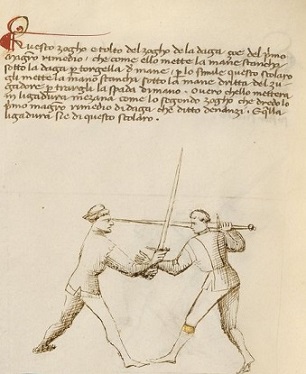 Questo zogho e tolto del zogho de la daga, çoe del primo
magro rimedio, che come ello mette la mane stancha
sotto la daga p torgella d mane, p lo simile questo scolaro
gli mette la mano stancha sotto la mane dritta del zu-
gadore p trargli la spada di mano. Overo chello mettera
in ligadura mezana come lo segondo zogho che dredo lo
primo magro rimedio di daga che ditto denanzi. E quella
ligadura sie de questo scolaro.